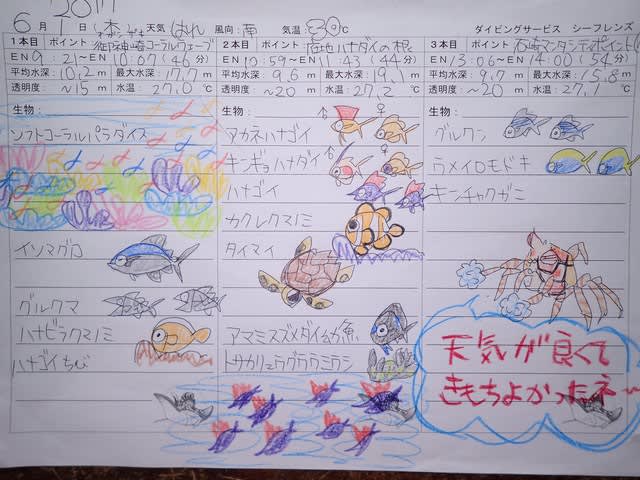 2017
6月1日(木) 天気 はれ 風向: 南 気温: 30℃ ダイビングサービス シーフレンズ
1本目 ポイント 御神崎コーラルウェーブ
EN 9:21~EX 10:07(46分)
平均水深: 10.2m 最大水深: 17.7m
透明度: ~15m 水温: 27.0℃
生物:
ソフトコーラルパラダイス
イソマグロ
グルクマ
ハナビラクマノミ
ハナゴイちび
2本目 ポイント ハナダイの根
EN 10:59~EX 11:43(44分)
平均水深: 9.6m 最大水深: 19.1m
透明度: ~20m 水温: 27.2℃
生物:
アカネハナゴイ ♂ ♀
キンギョハナダイ ♂ ♀
ハナゴイ
カクレクマノミ
タイマイ
アマミスズメダイ幼魚
トサカリュウグウウミウシ
3本目 ポイント 石崎マンタシティポイント
EN 13:06~EX 14:00(54分)
平均水深: 9.7m 最大水深: 15.8m
透明度: ~20m 水温: 27.1℃
生物:
グルクン
ウメイロモドキ
キンチャクガニ
天気が良くて
きもちよかったネ~